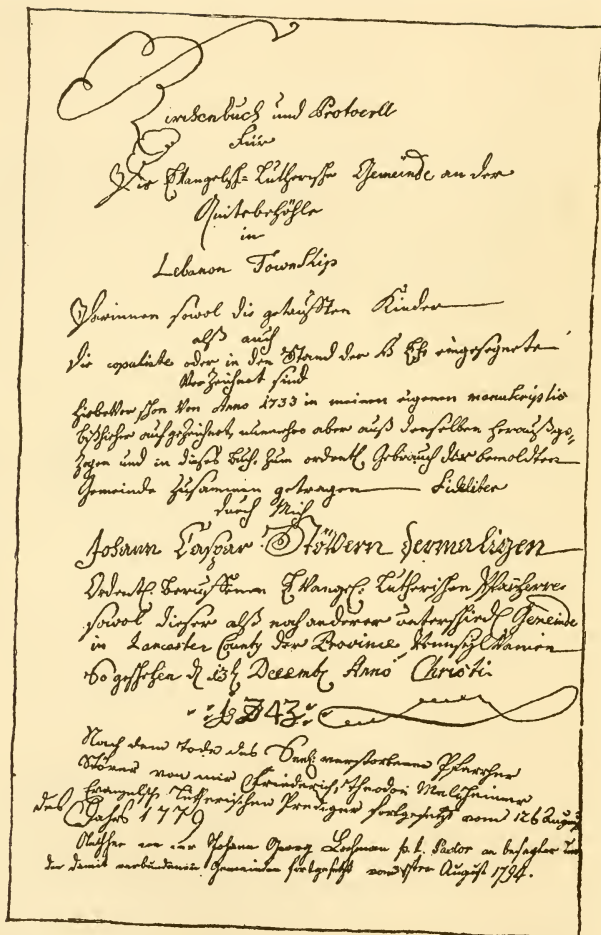 Kirchenbuch und Protocoll
Für
Die Evangelisch-Lutherische Gemeinde an der
Quitebehöhle
in
Lebanon Township
Darinnen sowol die getaufften Kinder
alß auch
die copulirte oder in den Stand der H Ehe eingesegnete
Verzeichnet sind
schon von Anno 1733 in meinen eigenen manuscriptis
bißhieher aufgezeichnet, nunmehro aber auß denselben heraußge-
zogen und in dieses Buch zum ordentl. Gebrauch bemeldten
Gemeinde zusammen getragen Fideliter
durch Mich
Johann Caspar Stövern dermaligen
Ordentl. beruffenen Evangel. Lutherischen Pfarrherrn
sowol dieser alß noch anderer unterschiedl. Gemeinde
in Lancaster County der Province Pennsylvanien
So geschehen d. 13t. Decemb. Anno Christi
1743
Nach dem Tode des Seel. verstorbenen Pfarrher
Stövers von mir Friederich Theodor Melsheimer
Evangelisch Lutherischen Prediger fortgesetzt vom 12 August
des Jahrs 1779
von mir Johann Georg Lochman p. t. Pastor an besagter
der damit verbundenen Gemeinden fortgesetzt August 1794.